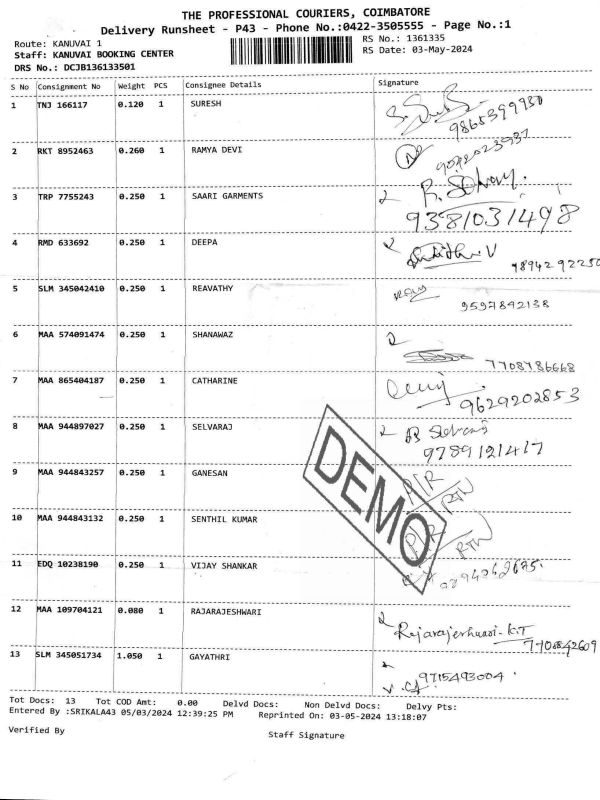 THE PROFESSIONAL COURIERS, COIMBATORE
Delivery Runsheet - P43 - Phone No.:0422-3505555 - Page No.:1
Route: KANUVAI 1
RS No.: 1361335
Staff: KANUVAI BOOKING CENTER
RS Date: 03-May-2024
DRS No.: DCJB136133501
S No Consignment No Weight PCS Consignee Details Signature
1 TNJ 166117 0.120 1 SURESH
9865399930
2 RKT 8952463 0.260 1 RAMYA DEVI
3 TRP 7755243 0.250 1 SAARI GARMENTS
9381031498
4 RMD 633692 0.250 1 DEEPA
9894292250
5 SLM 345042410 0.250 1 REAVATHY
9597842138
6 MAA 574091474 0.250 1 SHANAWAZ
7708786668
7 MAA 865404187 0.250 1 CATHARINE
9629202853
8 MAA 944897027 0.250 1 SELVARAJ
9789121417
9 MAA 944843257 0.250 1 GANESAN
P/R RTN
10 MAA 944843132 0.250 1 SENTHIL KUMAR
P/R RTN
11 EDQ 10238190 0.250 1 VIJAY SHANKAR
12 MAA 109704121 0.080 1 RAJARAJESHWARI
Rajarajeshwari K.T
7708842609
13 SLM 345051734 1.050 1 GAYATHRI
9715493004
DEMO
Tot Docs: 13 Tot COD Amt: 0.00 Delvd Docs: Non Delvd Docs: Delvy Pts:
Entered By :SRIKALA43 05/03/2024 12:39:25 PM Reprinted On: 03-05-2024 13:18:07
Verified By
Staff Signature